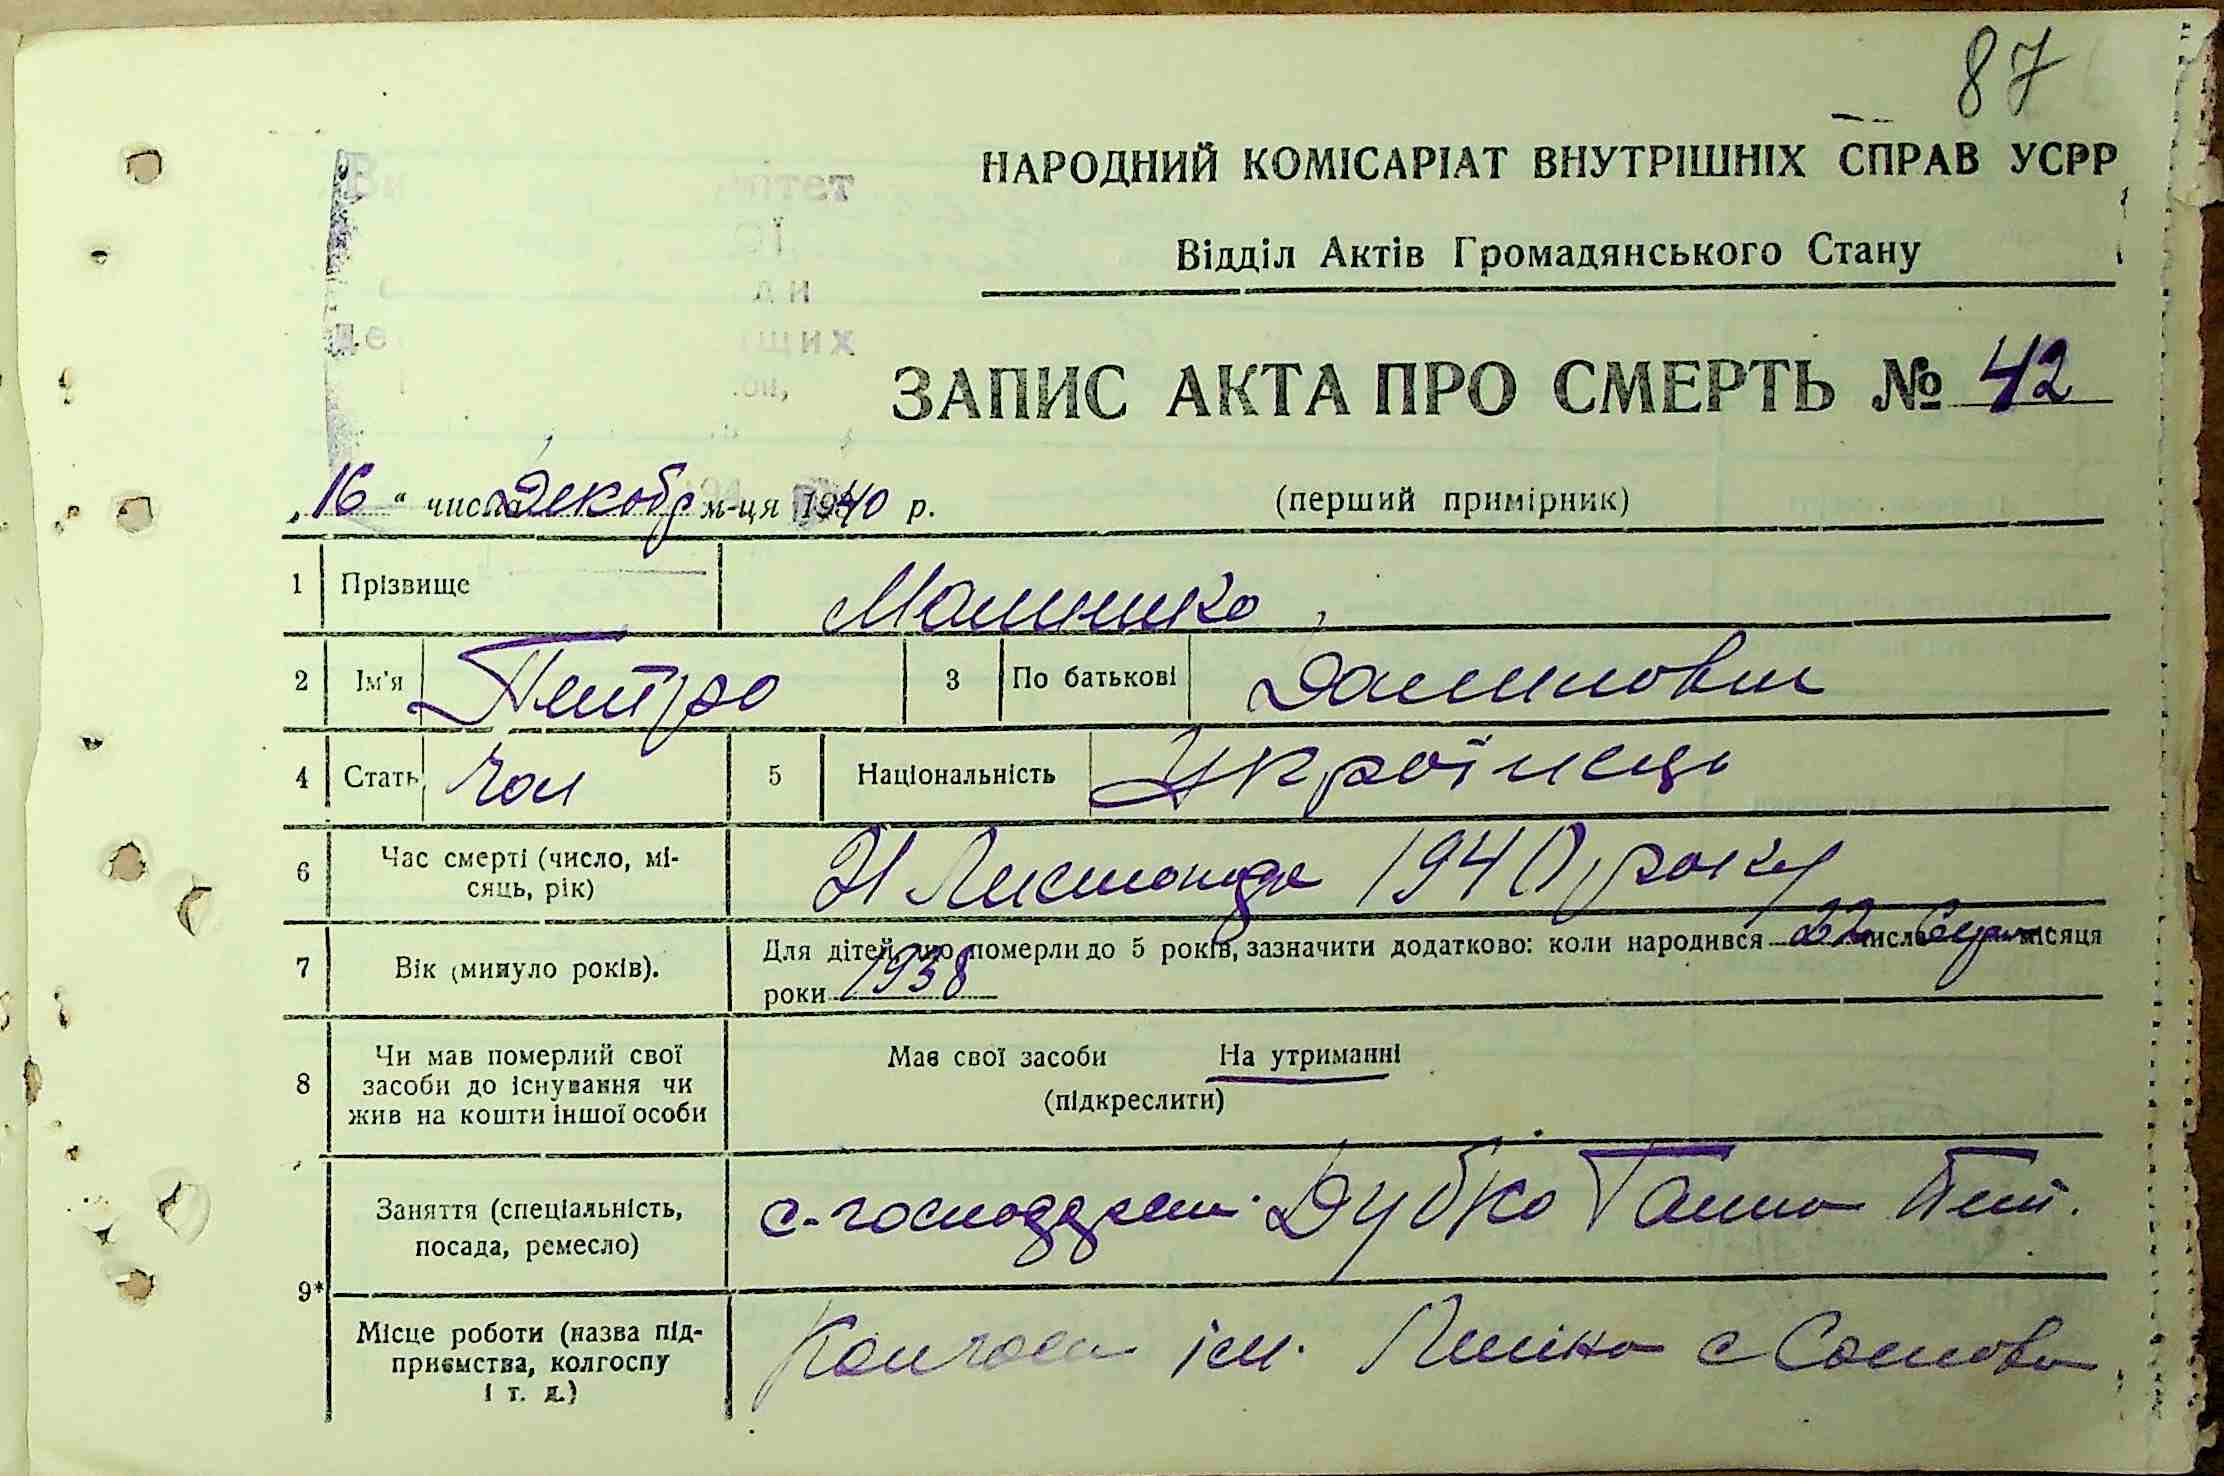 87
НАРОДНИЙ КОМІСАРІАТ ВНУТРІШНІХ СПРАВ УСРР
Відділ Актів Громадянського Стану
ЗАПИС АКТА ПРО СМЕРТЬ № 42
„16" числа Декабр м-ця 1940 р.
(перший примірник)
1 Прізвище Малишко
2 Ім'я Петро 3 По батькові
4 Стать Чол 5 Національність Українець
6 Час смерті (число, мі-
сяць, рік) 21 Листопада 1940 року
7 Вік (минуло років). Для дітей, що померли до 5 років, зазначити додатково: коли народився 22 числа Серпн місяця
роки 1938
8 Чи мав померлий свої
засоби до існування чи
жив на кошти іншої особи
Має свої засоби На утриманні
(підкреслити)
9* Заняття (спеціальність,
посада, ремесло) Дубко Ганна Пет.
Місце роботи (назва під-
приємства, колгоспу
і т. д.)
Колгосп ім. Леніна с